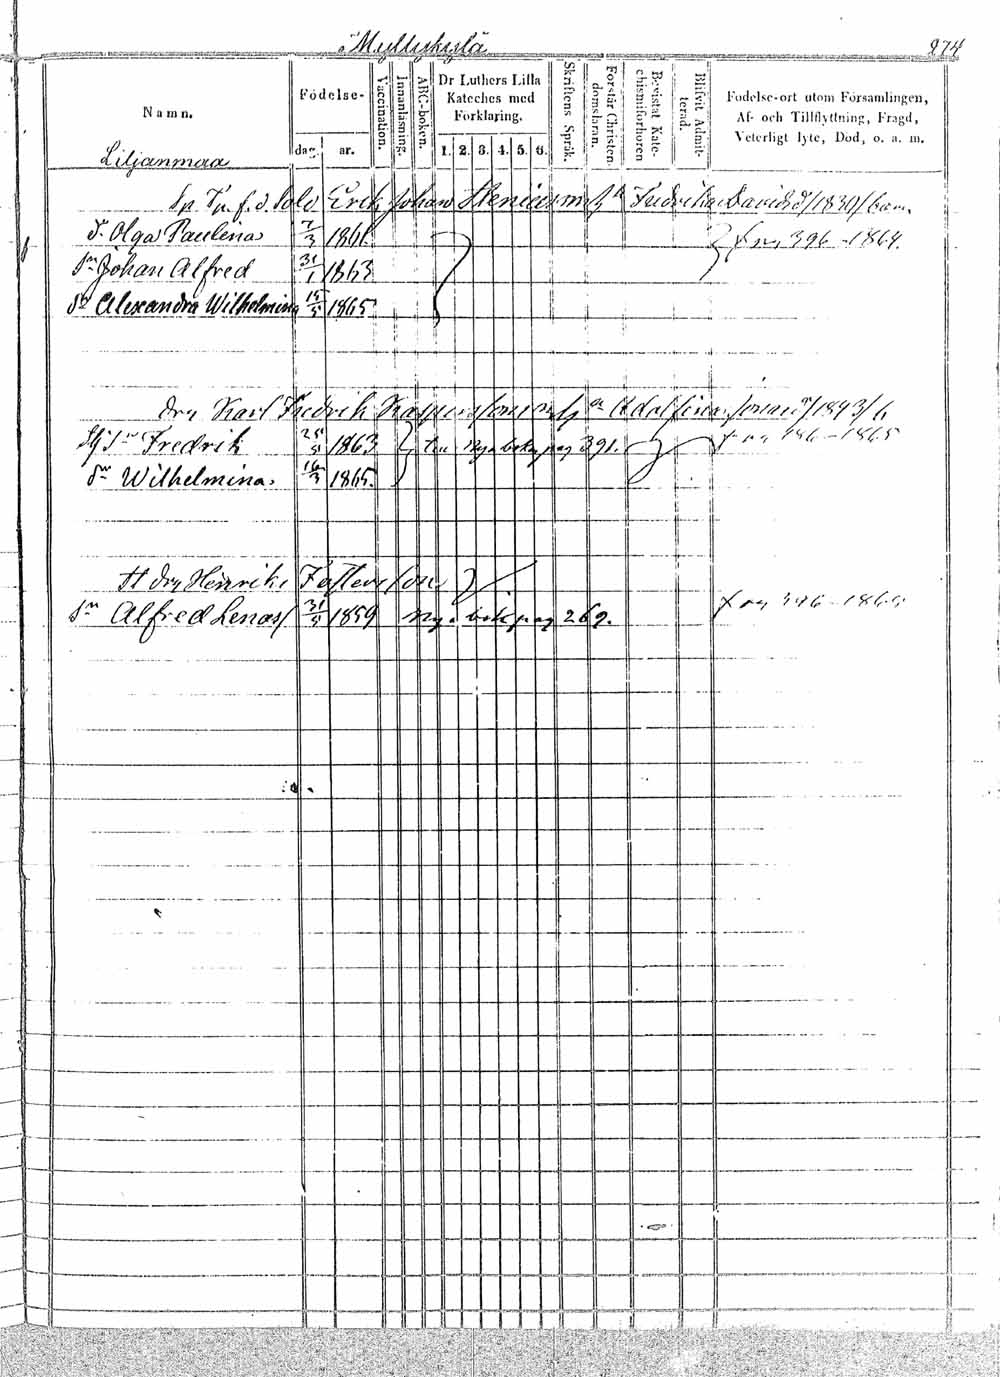 Myllykylä
274
Namn.
Födelse-
dag. år.
Vaccination.
Innanläsning.
ABC-boken.
Dr Luthers Lilla
Kateches med
Förklaring.
1. 2. 3. 4. 5. 6.
Skriftens Språk.
Förstår Christen-
domsläran.
Bevistat Kate-
chismiförhören
Blifvit Admit-
terad.
Födelse-ort utom Församlingen,
Af- och Tillflyttning, Frägd,
Veterligt lyte, Död, o. a. m.
Liljanmaa
f. d. Sold Erik Johan Stenius m h Fredrika Davids d/1830/ barn.
dr Olga Paulina 7/3 1861. fr pag 396 - 1864.
sn Johan Alfred 31/1 1863
dr Alexandra Wilhelmina 15/5 1865
drg Karl Fredrik Adolfina /1843/ b
sn Fredrik 25/5 1863 nya boken pag 391. 1865
dr Wilhelmina 16/3 1865.
drg Henrik
sn Alfred Lenas/ 31/5 1859 nya bok pag 269. fr pag 396